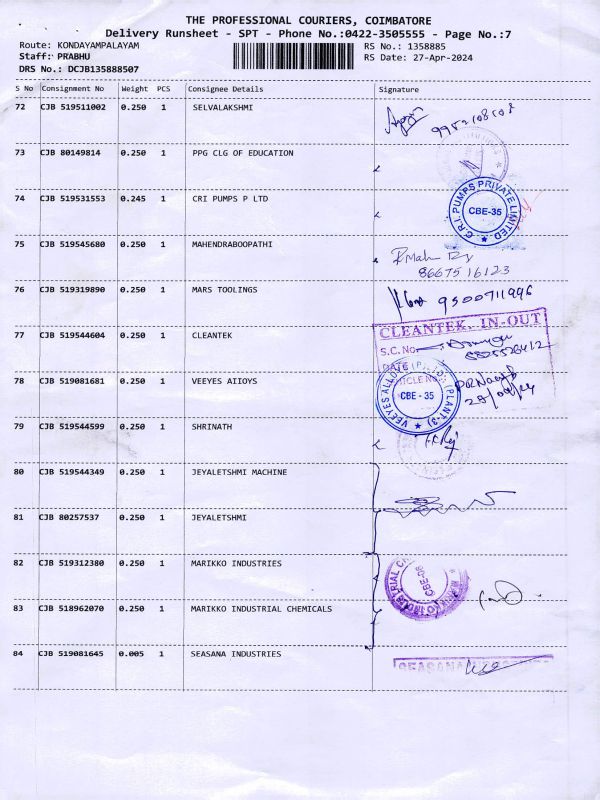 THE PROFESSIONAL COURIERS, COIMBATORE
Delivery Runsheet - SPT - Phone No.:0422-3505555 - Page No.:7
Route: KONDAYAMPALAYAM
RS No.: 1358885
Staff: PRABHU
RS Date: 27-Apr-2024
DRS No.: DCJB135888507
S No Consignment No Weight PCS Consignee Details Signature
72 CJB 519511002 0.250 1 SELVALAKSHMI
73 CJB 80149814 0.250 1 PPG CLG OF EDUCATION
74 CJB 519531553 0.245 1 CRI PUMPS P LTD
C.R.I. PUMPS PRIVATE LIMITED
CBE-35
75 CJB 519545680 0.250 1 MAHENDRABOOPATHI
8667516123
76 CJB 519319890 0.250 1 MARS TOOLINGS
9500711996
77 CJB 519544604 0.250 1 CLEANTEK
CLEANTEK. IN-OUT
S.C. No.
DATE
78 CJB 519081681 0.250 1 VEEYES AIIOYS
CBE - 35
(PLANT-3)
79 CJB 519544599 0.250 1 SHRINATH
80 CJB 519544349 0.250 1 JEYALETSHMI MACHINE
81 CJB 80257537 0.250 1 JEYALETSHMI
82 CJB 519312380 0.250 1 MARIKKO INDUSTRIES
83 CJB 518962070 0.250 1 MARIKKO INDUSTRIAL CHEMICALS
84 CJB 519081645 0.005 1 SEASANA INDUSTRIES